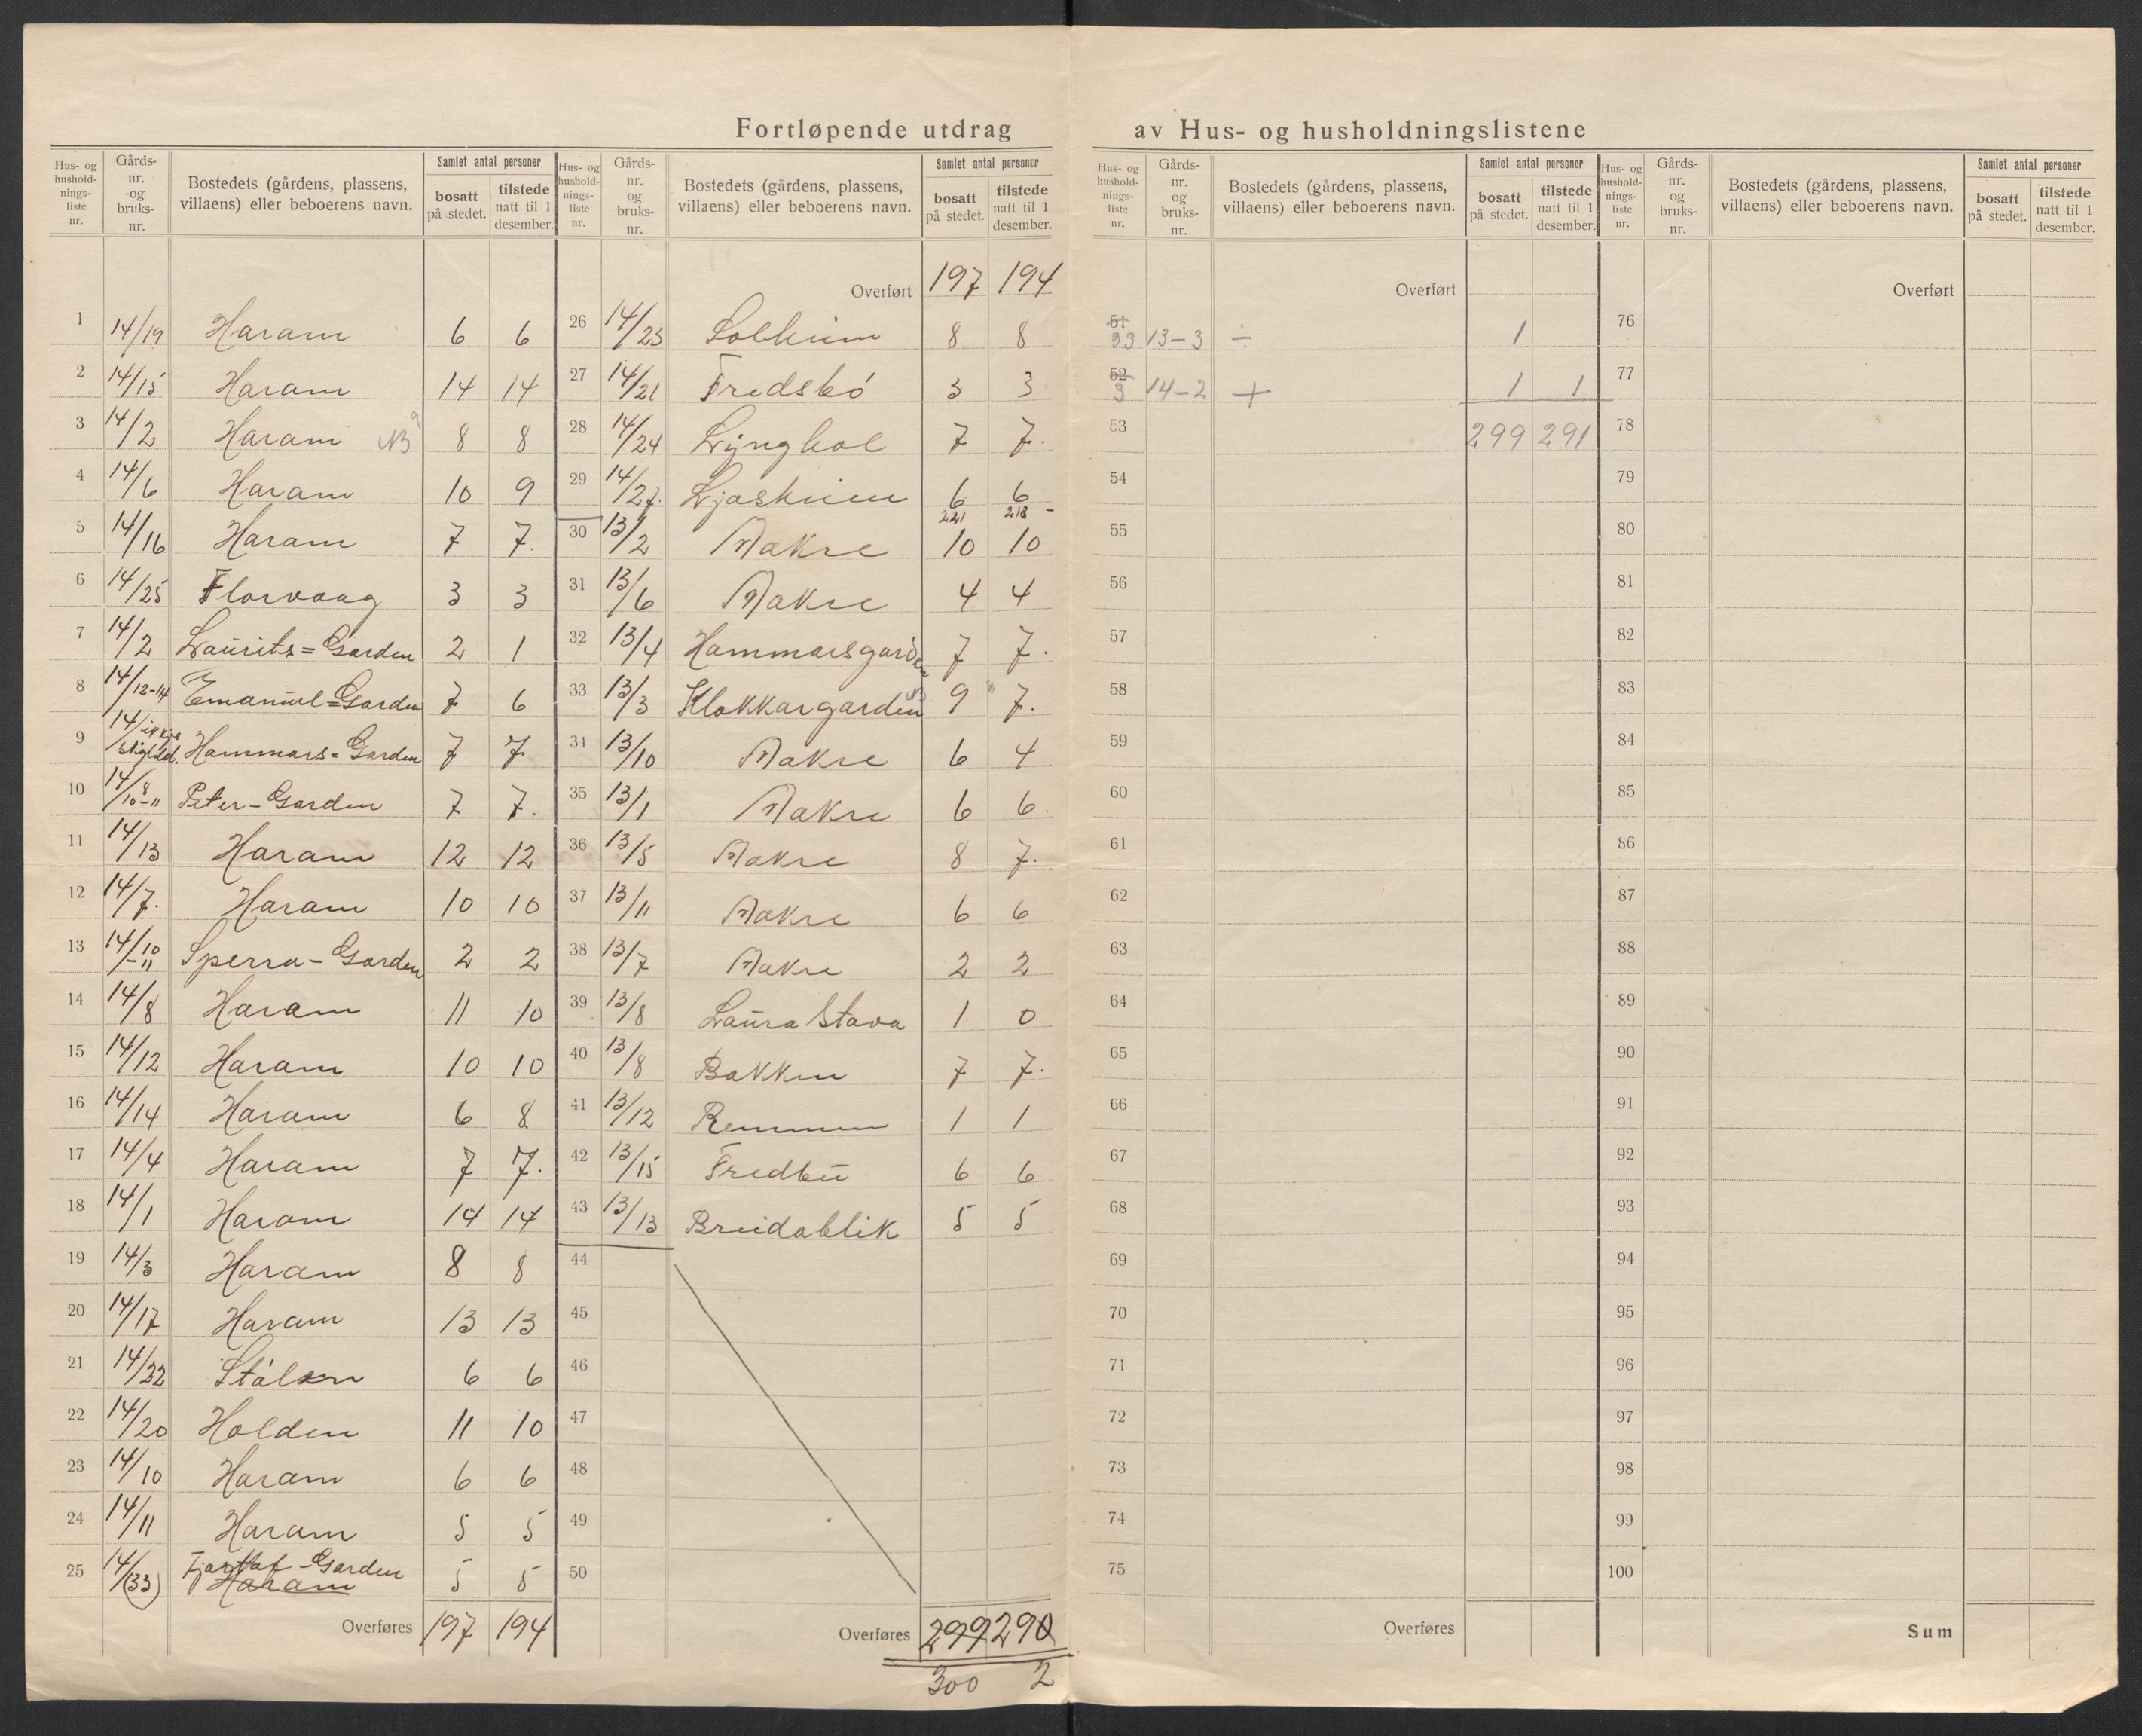 Fortløpende utdrag av Hus- og husholdningslistene
Hus- og husholdnings-liste nr. | Gårds-nr. og bruks-nr. | Bostedets (gårdens, plassens, villaens) eller beboerens navn. | Samlet antal personer bosatt på stedet. | tilstede natt til 1 desember.
1 14/19 Haram 6 6
2 14/15 Haram 14 14
3 14/2 Haram NB 8 8
4 14/6 Haram 10 9
5 14/16 Haram 7 7.
6 14/25 Florvaag 3 3
7 14/2 Laurits=Garden 2 1
8 14/12-14 Emanuel=Garden 7 6
9 14/ikkje skyld. Hammars=Garden 7 7
10 14/8 10-11 Peter-Garden 7 7.
11 14/13 Haram 12 12
12 14/7. Haram 10 10
13 14/10-11 Sperra-Garden 2 2
14 14/8 Haram 11 10
15 14/12 Haram 10 10
16 14/14 Haram 6 8
17 14/4 Haram 7 7.
18 14/1 Haram 14 14
19 14/3 Haram 8 8
20 14/17 Haram 13 13
21 14/22 6 6
22 14/20 Holden 11 10
23 14/10 Haram 6 6
24 14/11 Haram 5 5
25 14/(33) Garden Haram 5 5
Overføres 197 194
Hus- og husholdnings-liste nr. | Gårds-nr. og bruks-nr. | Bostedets (gårdens, plassens, villaens) eller beboerens navn. | Samlet antal personer bosatt på stedet. | tilstede natt til 1 desember.
Overført 197 194
26 14/23 Solheim 8 8
27 14/21 Fredsbó 3 3
28 14/24 Lynghol 7 7.
29 14/27. 6 6
221 218 -
30 13/2 Aakre 10 10
31 13/6 Aakre 4 4
32 13/4 Hammarsgarden 7 7.
33 13/3 Klokkargarden NB 9 7.
34 13/10 Aakre 6 4
35 13/1 Aakre 6 6
36 13/5 Aakre 8 7.
37 13/11 Aakre 6 6
38 13/7 Aakre 2 2
39 13/8 Laura Stava 1 0
40 13/8 Bakken 7 7.
41 13/12 Remmen 1 1
42 13/15 Fredbu 6 6
43 13/13 Breidablik 5 5
44
45
46
47
48
49
50
Overføres 299 290
300 2
Hus- og husholdnings-liste nr. | Gårds-nr. og bruks-nr. | Bostedets (gårdens, plassens, villaens) eller beboerens navn. | Samlet antal personer bosatt på stedet. | tilstede natt til 1 desember.
Overført
51 33 13-3 ÷ 1
52 3 14-2 + 1 1
53 299 291
54
55
56
57
58
59
60
61
62
63
64
65
66
67
68
69
70
71
72
73
74
75
Overføres
Hus- og husholdnings-liste nr. | Gårds-nr. og bruks-nr. | Bostedets (gårdens, plassens, villaens) eller beboerens navn. | Samlet antal personer bosatt på stedet. | tilstede natt til 1 desember.
Overført
76
77
78
79
80
81
82
83
84
85
86
87
88
89
90
91
92
93
94
95
96
97
98
99
100
Sum